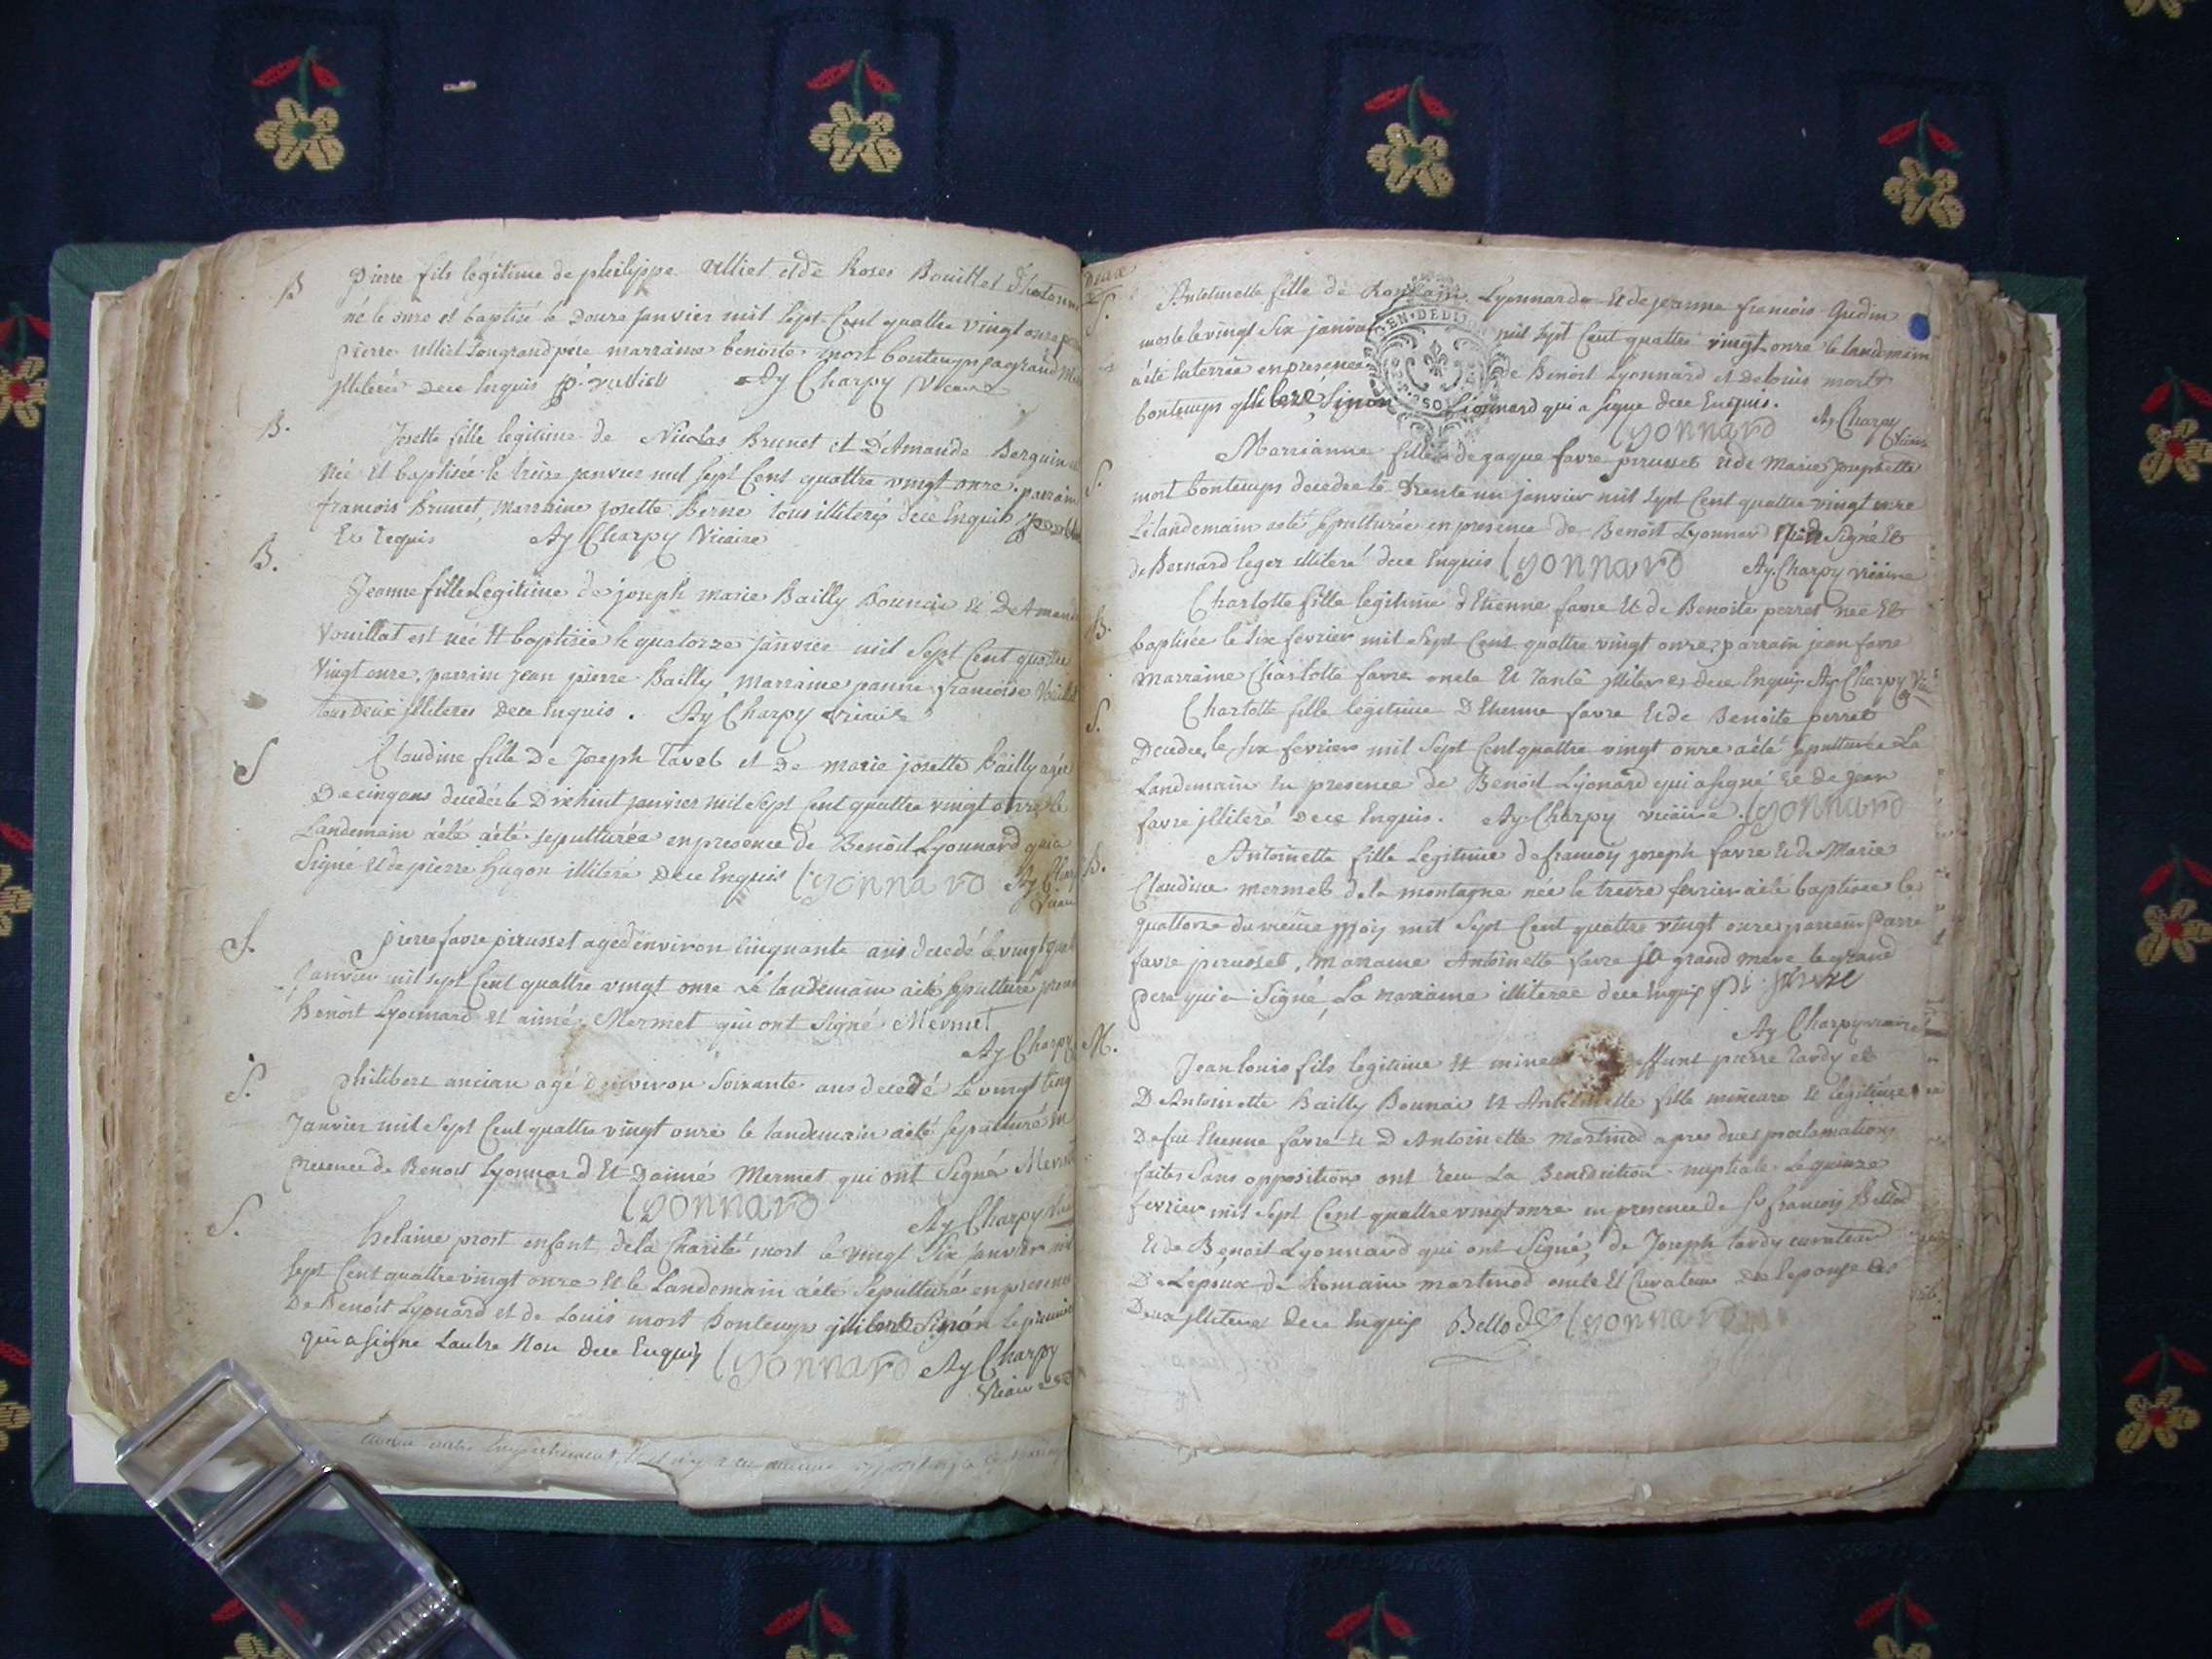 B Pierre fils légitime de philippe Ulliet et de Roses Bouillet
né le onze et baptisé le douze janvier mil sept Cent quattre vingt onze
pierre Ulliet son grand père marraine benoite mort bontemps sa grand
illiterés dece Enquis Ay Charpy Vicaire
B. Josette fille legitime de Nicolas Brunet et D'Amande Berguin
Née et baptisée le treize janvier mil sept Cent quattre vingt onze parrain
francois Brunet, Marraine Josette Berne tous illiterés dece Enquis
Et Requis Ay Charpy Vicaire
B.
Jeanne fille Legitime de joseph marie Bailly Bounai et De Amande
Vouillat est née Et baptisée le quatorze janvier mil Sept Cent quattre
Vingt onze, parrain jean pierre Bailly, Marraine francoise
tous Deux illiteres Dece Enquis. Ay Charpy Vicaire
S Claudine fille De Joseph Tavel et De marie josette Bailly agée
De cinq ans decedée le Dixhuit janvier mil Sept Cent quattre vingt onze le
Landemain aété aété sepulturée en presence de Benoit Lyonnard qui a
Signé Et de pierre hugon illiteré Dece Enquis Lyonnard Ay Charpy
Vicaire
S. pierre favre perusset agé d'environ Cinquante ans decedé le vingt
Janvier mil sept Cent quattre vingt onze Le landemain aété sepulturé
Benoit Lyonnard et aimé Mermet qui ont Signé Mermet
Ay Charpy
S. Philibert ancian agé d'environ Soixante ans decedé Le vingt Cinq
Janvier mil Sept Cent quattre vingt onze le landemain aété sepulturé en
presence de Benoit Lyonnard Et Daimé Mermet qui ont Signé Mermet
Lyonnard
S. Ay Charpy
helaine prost enfant de la Charité mort le vingt Six janvier mil
Sept Cent quattre vingt onze Et le Landemain aété Sepulturé en presence
De Benoit Lyonard et de Louis mort Bontemps illiteré Sinon le premier
qui a signé Lautre Non dece Enquis Lyonnard Ay Charpy
Vicaire
Deux
S. Antoinette fille de Romain Lyonnard Et de jeanne francois Gudin
morte le vingt Six janvier mil sept Cent quattre vingt onze le landemain
aété Enterrée en presence de Benoit Lyonnard et de Louis mort
bontemps illiteré, Sinon Lionnard qui a signé dece Enquis.
Lyonnard Ay Charpy
Vicaire
Marrianne fille de jaque favre perusset et de Marie Josephette
S. mort bontemps decedée le Trente un janvier mil Sept Cent quattre vingt onze
Le landemain aété sepulturée en presence de Benoit Lyonnard qui a Signé Et
de Bernard leger illiteré dece Enquis Lyonnard Ay Charpy vicaire
Charlotte fille legitime d'Etienne favre Et de Benoite perret née Et
B. baptisée le six fevrier mil Sept Cent quattre vingt onze, parrain jean favre
Marraine Charlotte favre oncle Et Tante illiteres dece Enquis Ay Charpy
S. Charlotte fille legitime D'Etienne favre Et de Benoite perret
Decedée le six fevrier mil Sept Cent quattre vingt onze aété sepulturée Le
Landemain En presence de Benoit Lyonard qui a signé Et de jean
favre illiteré Dece Enquis. Ay Charpy vicaire. Lyonnard
B. Antoinette fille Legitime de francois joseph favre Et de Marie
Claudine mermet de la montagne née le treize fevrier aété baptisée le
quattorze du même Mois mil Sept Cent quattre vingt onze parrain
favre perusset, Maraine Antoinette favre sa grand mere le grand
pere qui a Signé, La maraine illiterée dece Enquis
Ay Charpy vicaire
M.
Jean louis fils legitime Et mineur deffunt pierre tardy et
D'Antoinette Bailly Bounai Et Antoinette fille mineure Et legitime
De feu Etienne favre Et D'Antoinette Martinod apres dues proclamations
faites Sans oppositions ont recu La Benediction nuptiale Le quinze
fevrier mil Sept Cent quattre vingt onze en presence de Sr francois Bellod
Et de Benoit Lyonnard qui ont Signé, de Joseph tardy curateur
De Lepoux de Romain martinod oncle Et Curateur de Lepouse
Deux illiteres dece Enquis Bellod Lyonnard